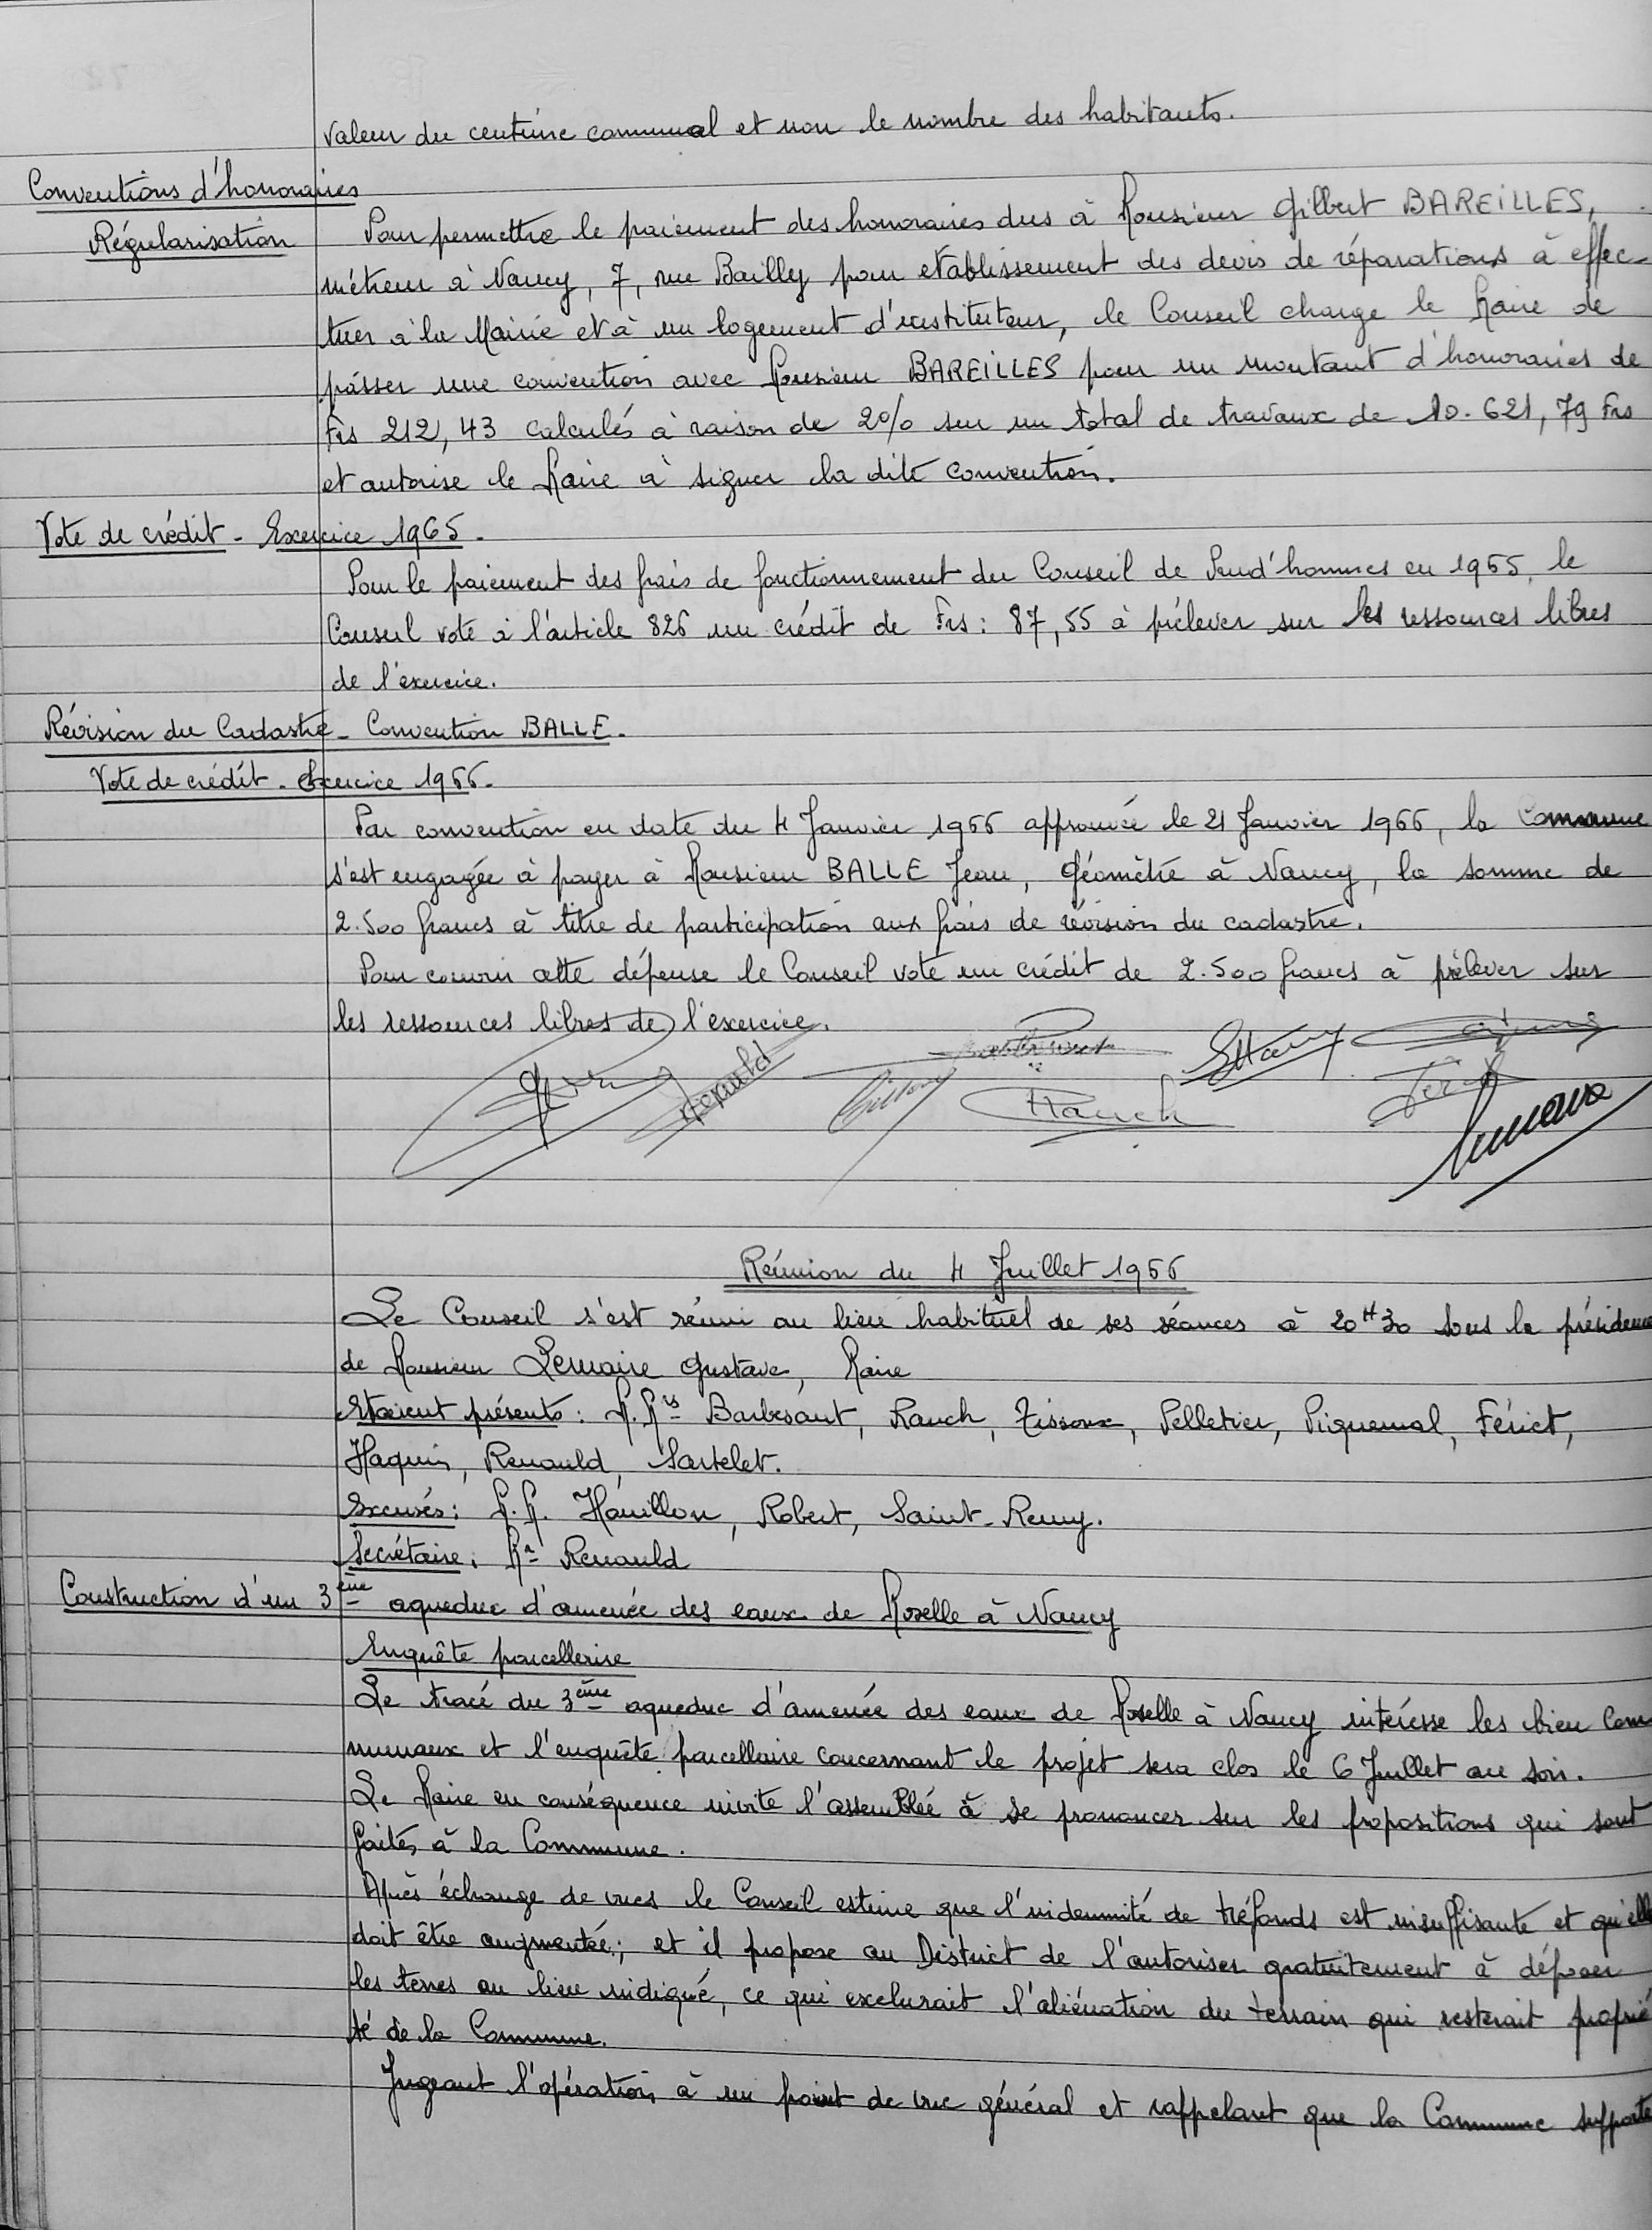 valeur du centime communal et non le nombre des habitants.
Conventions d'honoraires
Régularisation
Pour permettre le paiement des honoraires dus à Monsieur Gilbert BAREILLES,
métreur à Nancy, 7, rue Bailly pour etablissement des devis de réparations à effec-
tuer à la Mairie et à un logement d'instituteur, le Conseil charge le Maire de
passer une convention avec Monsieur BAREILLES pour un montant d'honoraires de
Frs 212,43 calculés à raison de 2% sur un total de travaux de 10.621,79 Frs
et autorise le Maire à signer la dite convention.
Vote de crédit - Exercice 1965.
Pour le paiement des frais de fonctionnement du Conseil de Prud'hommes en 1965, le
Conseil vote à l'article 826 un crédit de Frs : 87,55 à prélever sur les ressources libres
de l'exercice.
Révision du Cadastre - Convention BALLE.
Vote de crédit - Exercice 1966.
Par convention en date du 4 Janvier 1966 approuvée le 21 Janvier 1966, la Commune
s'est engagée à payer à Monsieur BALLE Jean, Géomètre à Nancy, la somme de
2.500 francs à titre de participation aux frais de révision du cadastre.
Pour couvrir cette dépense le Conseil vote un crédit de 2.500 francs à prélever sur
les ressources libres de l'exercice.
Renauld
Rauch
Réunion du 4 Juillet 1966
Le Conseil s'est réuni au lieu habituel de ses séances à 20H30 sous la présidence
de Monsieur Lemoine Gustave, Maire
Etaient présents : M.Mrs Barbesant, Rauch, Tissoux, Pelletier, Piquemal, Fériet,
Haquin, Renauld, Sartelet.
Excusés : M.M. Houillon, Robert, Saint-Remy.
Secrétaire : Mr Renauld
Construction d'un 3ème aqueduc d'amenée des eaux de Moselle à Nancy
Enquête parcellerise
Le tracé du 3ème aqueduc d'amenée des eaux de Moselle à Nancy intéresse les bien com-
munaux et l'enquête parcellaire concernant le projet sera clos le 6 Juillet au soir.
Le Maire en conséquence invite l'assemblée à se prononcer sur les propositions qui sont
faites à la Commune.
Après échange de vues le Conseil estime que l'indemnité de tréfonds est insuffisante et qu'elle
doit être augmentée ; et il propose au District de l'autoriser gratuitement à déposer
les terres au lieu indiqué, ce qui exclurait l'aliénation du terrain qui resterait proprié
té de la Commune.
Jugeant l'opération à un point de vue général et rappelant que la Commune supporte